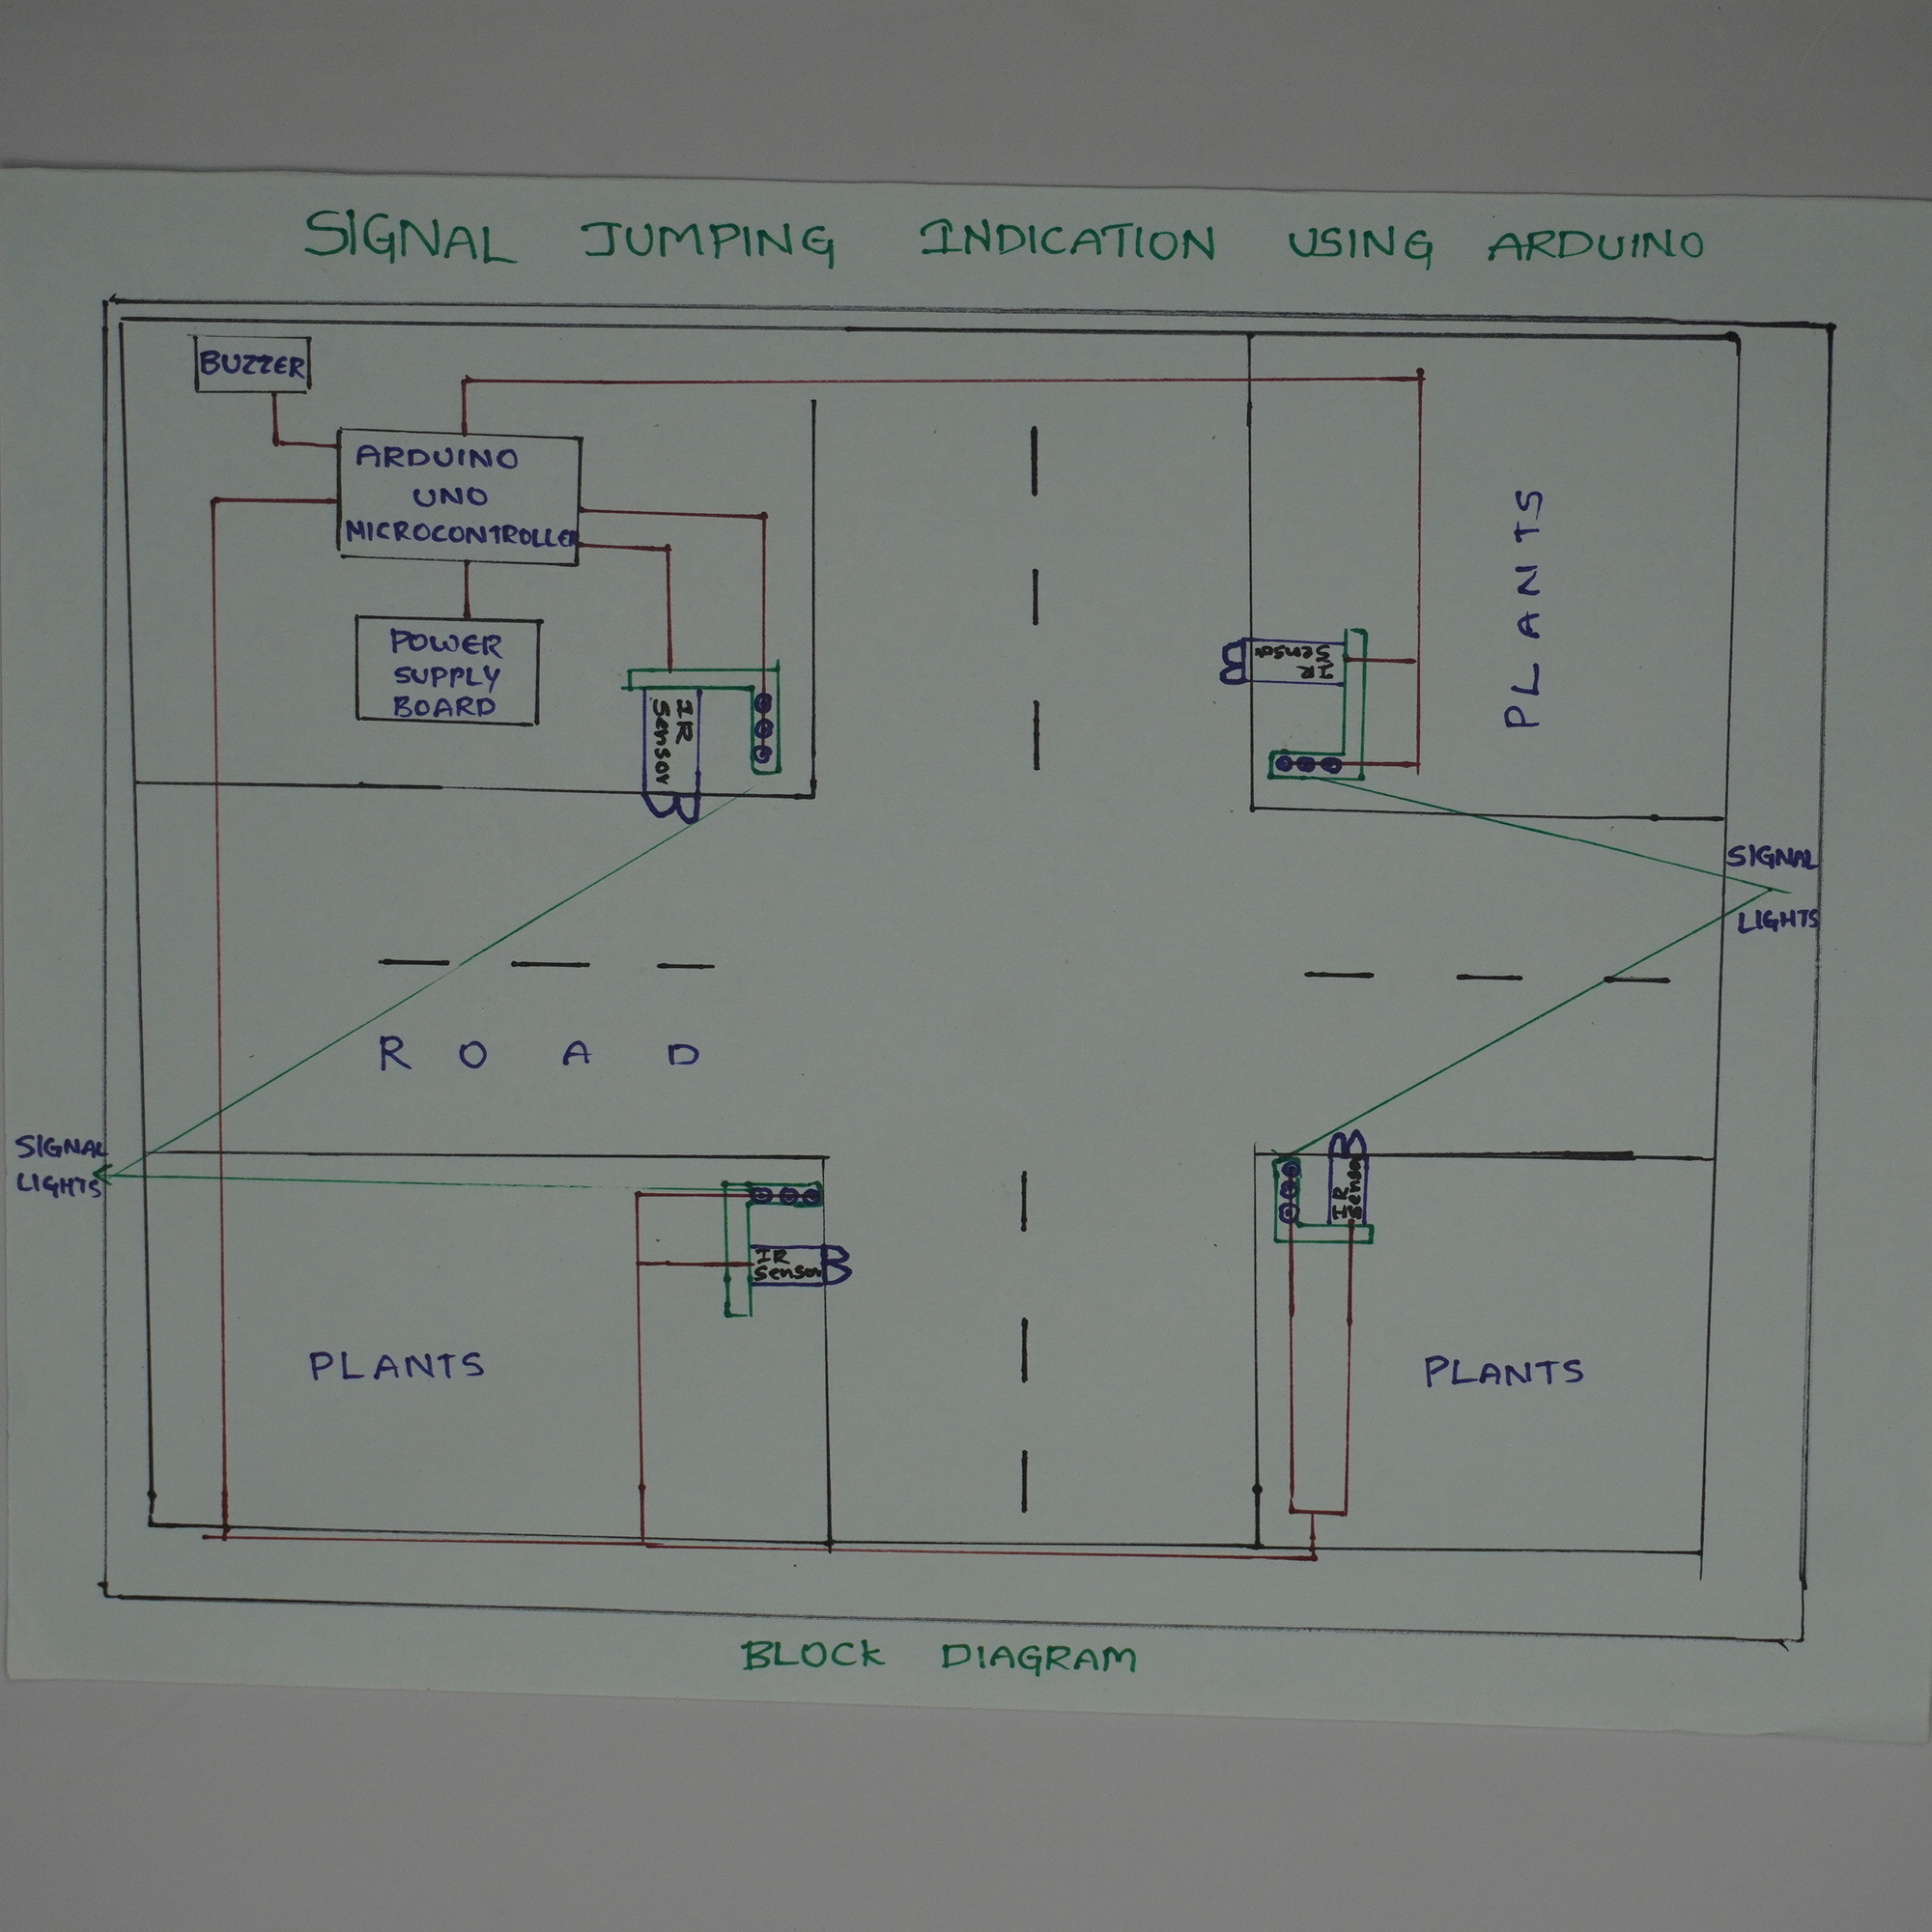 SIGNAL JUMPING INDICATION USING ARDUINO
BUZZER
ARDUINO
UNO
MICROCONTROLLER
POWER
SUPPLY
BOARD
IR
Sensor
IR
Sensor
PLANTS
SIGNAL
LIGHTS
ROAD
SIGNAL
LIGHTS
IR
Sensor
IR
Sensor
PLANTS
PLANTS
BLOCK DIAGRAM